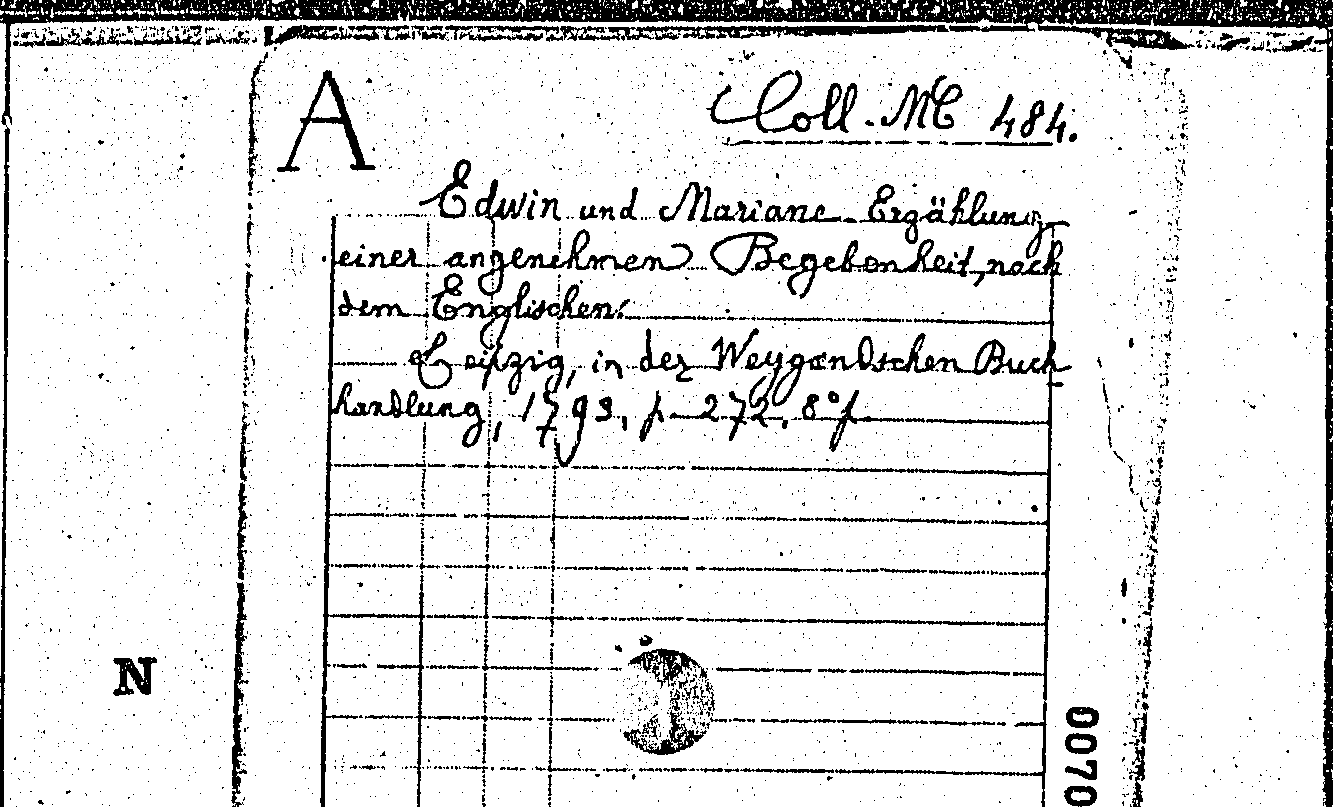 A
Coll. MC 484.
Edwin und Mariane. Erzählung
einer angenehmen Begebenheit, nach
dem Englischen.
Leipzig, in der Weygandschen Buch
handlung, 1793, p. 272. 8° f.
N
0070